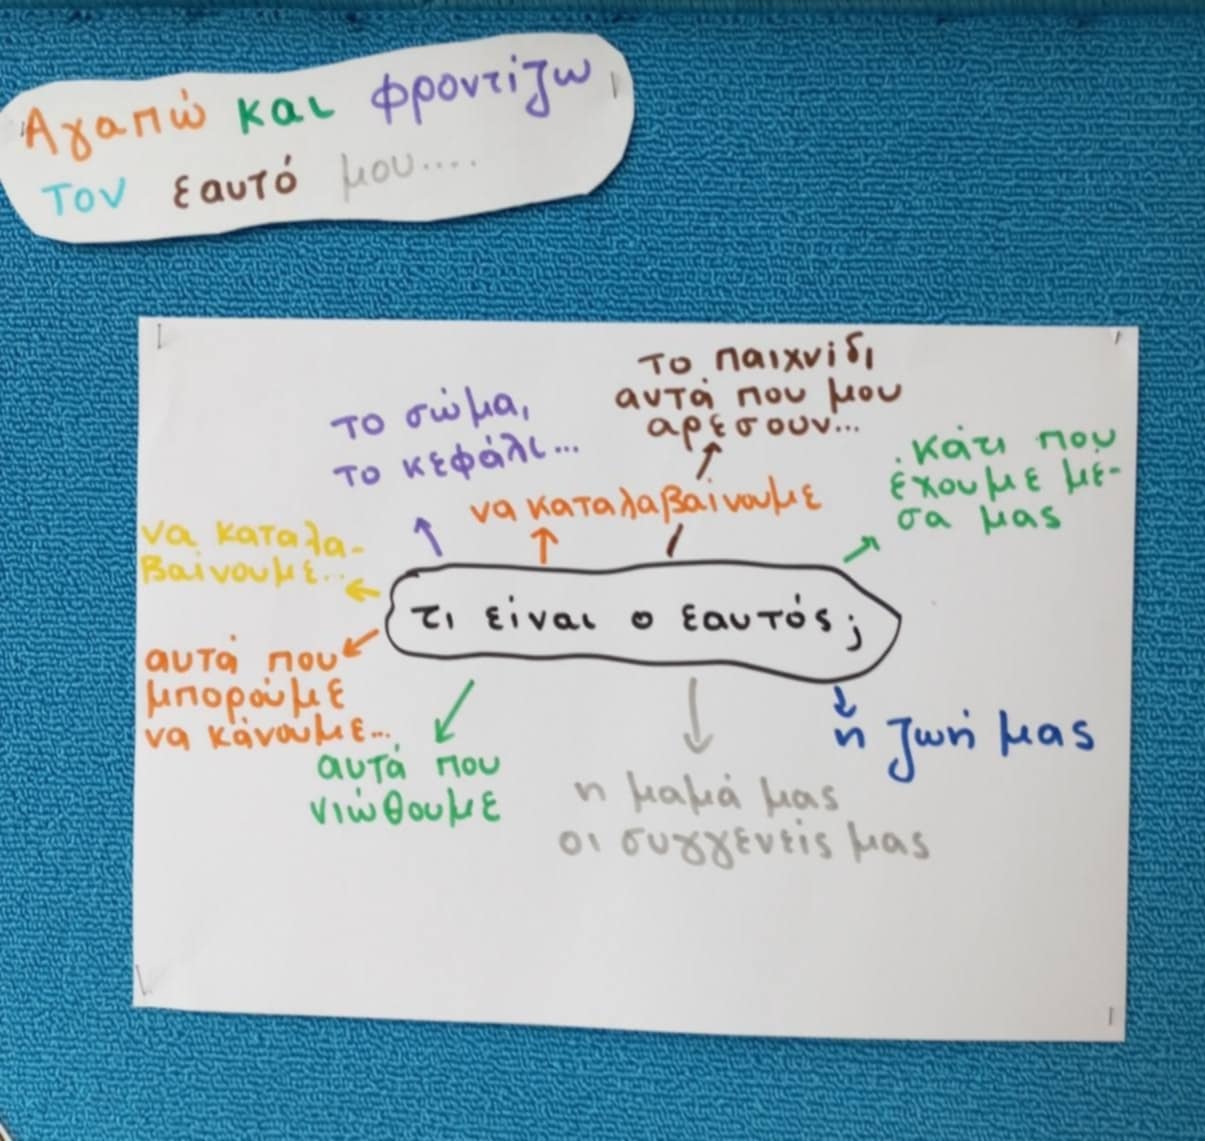 Αγαπώ και φροντίζω
τον εαυτό μου....
το παιχνίδι
αυτά που μου
αρέσουν...
το σώμα,
το κεφάλι...
να καταλαβαίνουμε
κάτι που
έχουμε μέ-
σα μας
να καταλα-
βαίνουμε...
τι είναι ο εαυτός;
αυτά που
μπορούμε
να κάνουμε...
αυτά που
νιώθουμε
η μαμά μας
οι συγγενείς μας
η ζωή μας